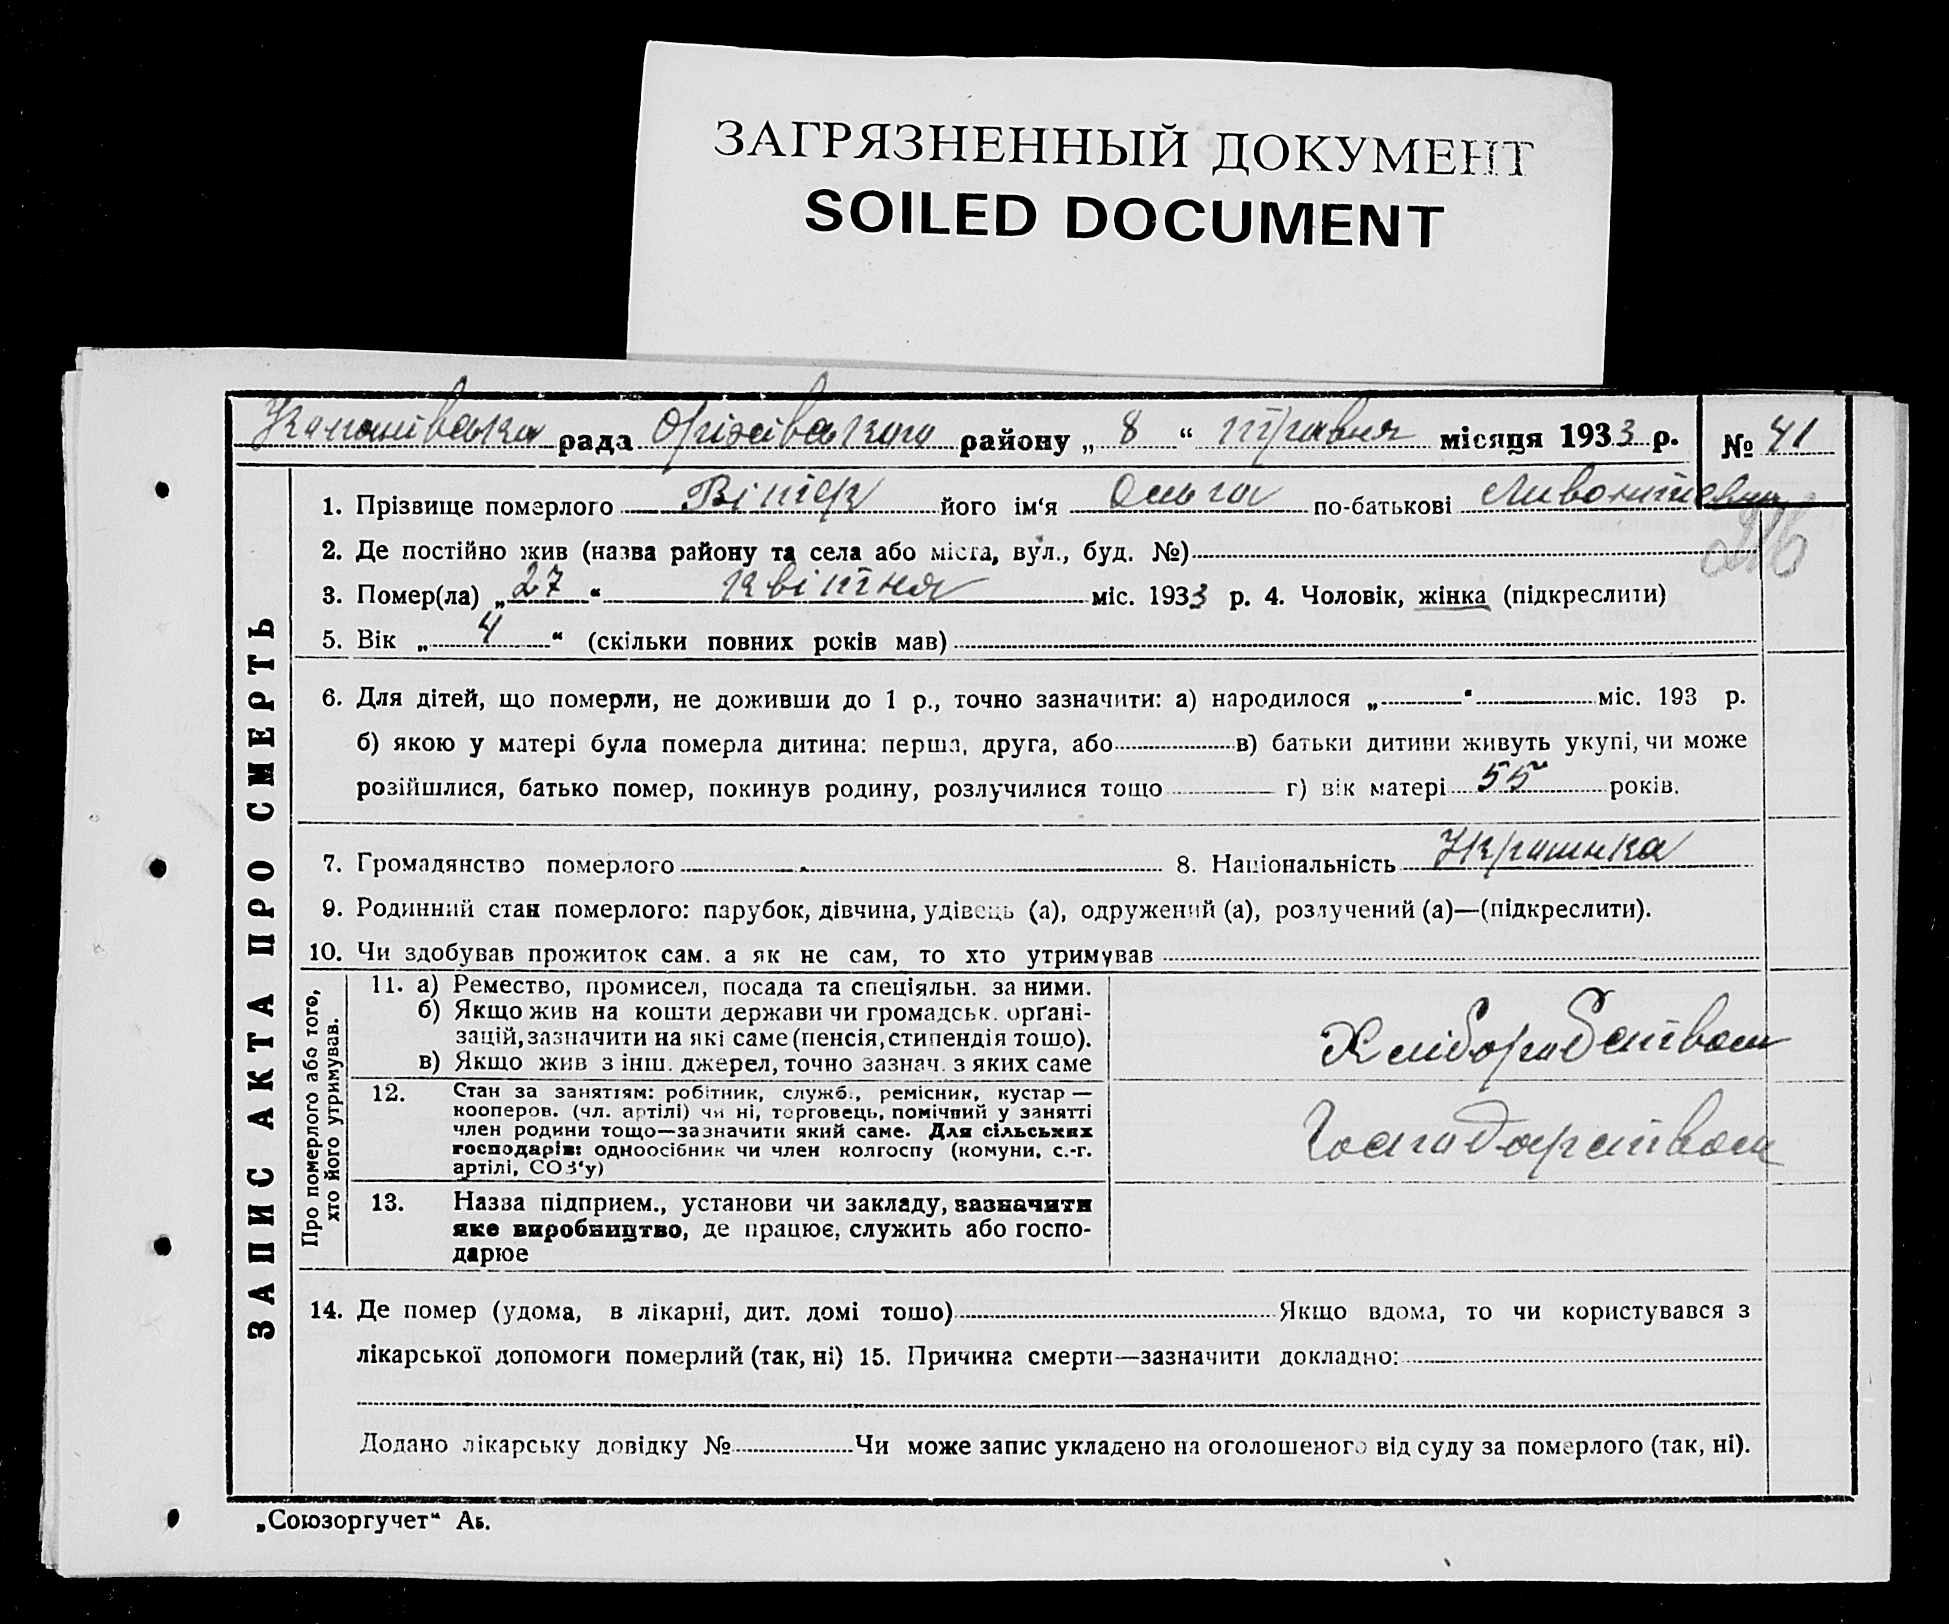 ЗАГРЯЗНЕННЫЙ ДОКУМЕНТ
SOILED DOCUMENT
рада Оржівського району „ 8 “ травня місяця 1933 р. № 41
1. Прізвище померлого Вітер його ім‘я Ольга по-батькові
2. Де постійно жив (назва району та села або міста, вул., буд. №)
3. Помер(ла) „ 27 “ квітня міс. 1933 р. 4. Чоловік, жінка (підкреслити)
5. Вік „ 4 “ (скільки повних років мав)
6. Для дітей, що померли, не доживши до 1 р., точно зазначити: а) народилося „ “ міс. 193 р.
б) якою у матері була померла дитина: перша, друга, або в) батьки дитини живуть укупі, чи може
розійшлися, батько помер, покинув родину, розлучилися тощо г) вік матері 55 років.
7. Громадянство померлого 8. Національність Українка
9. Родинний стан померлого: парубок, дівчина, удівець (а), одружений (а), розлучений (а)—(підкреслити).
10. Чи здобував прожиток сам. а як не сам, то хто утримував
ЗАПИС АКТА ПРО СМЕРТЬ
Про померлого або того,
хто його утримував.
11. а) Ремество, промисел, посада та спеціяльн. за ними.
б) Якщо жив на кошти держави чи громадськ. орґані-
зацій, зазначити на які саме (пенсія, стипендія тощо).
в) Якщо жив з інш. джерел, точно зазнач. з яких саме
Хліборобством
12. Стан за заняттям: робітник, служб., ремісник, кустар —
кооперов. (чл. артілі) чи ні, торговець, помічний у занятті
член родини тощо—зазначити який саме. Для сільських
господарів: одноосібник чи член колгоспу (комуни, с.-г.
артілі, СОЗ‘у)
Господарством
13. Назва підприєм., установи чи закладу, зазначити
яке виробництво, де працює, служить або госпо-
дарює
14. Де помер (удома, в лікарні, дит. домі тощо) Якщо вдома, то чи користувався з
лікарської допомоги померлий (так, ні) 15. Причина смерти—зазначити докладно:
Додано лікарську довідку № Чи може запис укладено на оголошеного від суду за померлого (так, ні).
„Союзоргучет“ Аь.